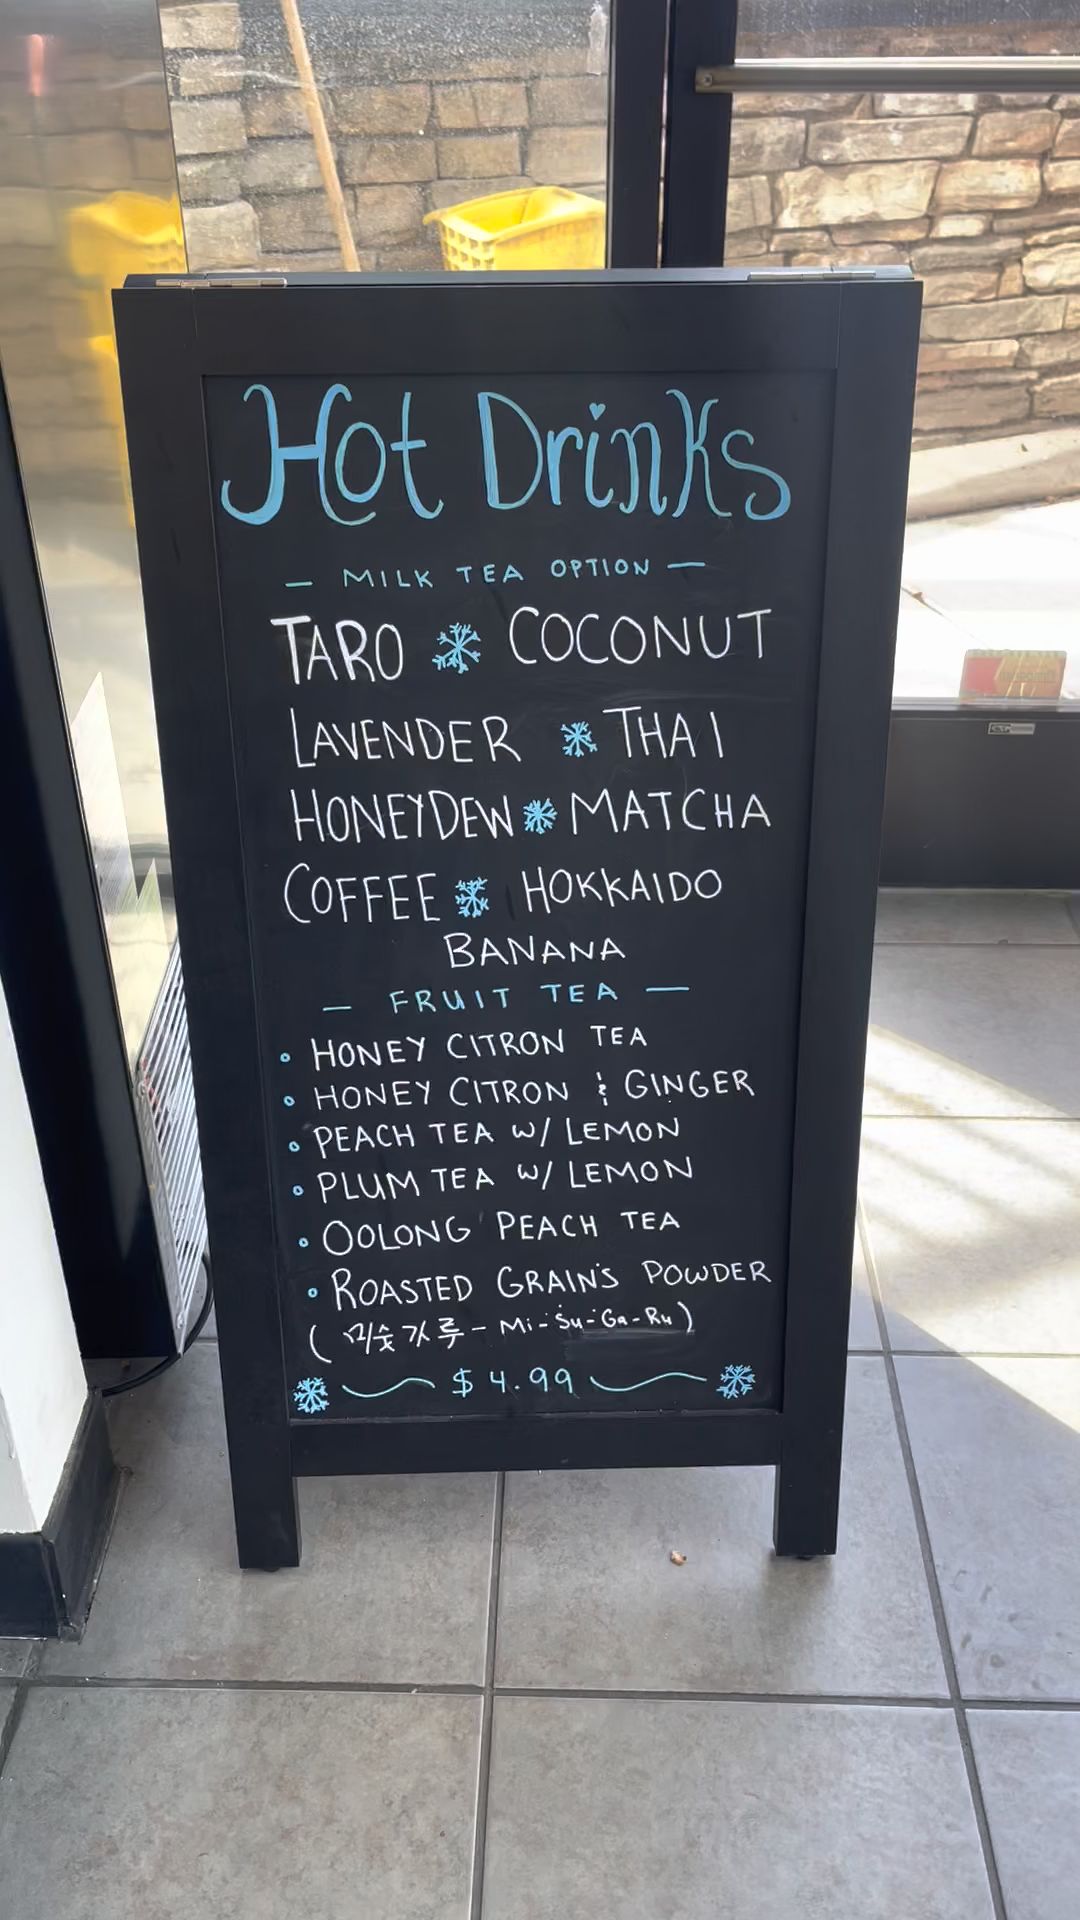 Hot Drinks
— MILK TEA OPTION —
TARO COCONUT
LAVENDER THAI
HONEYDEW MATCHA
COFFEE HOKKAIDO
BANANA
— FRUIT TEA —
• HONEY CITRON TEA
• HONEY CITRON & GINGER
• PEACH TEA W/ LEMON
• PLUM TEA W/ LEMON
• OOLONG PEACH TEA
• ROASTED GRAIN'S POWDER
(미숫가루 - Mi-Su-Ga-Ru)
$4.99